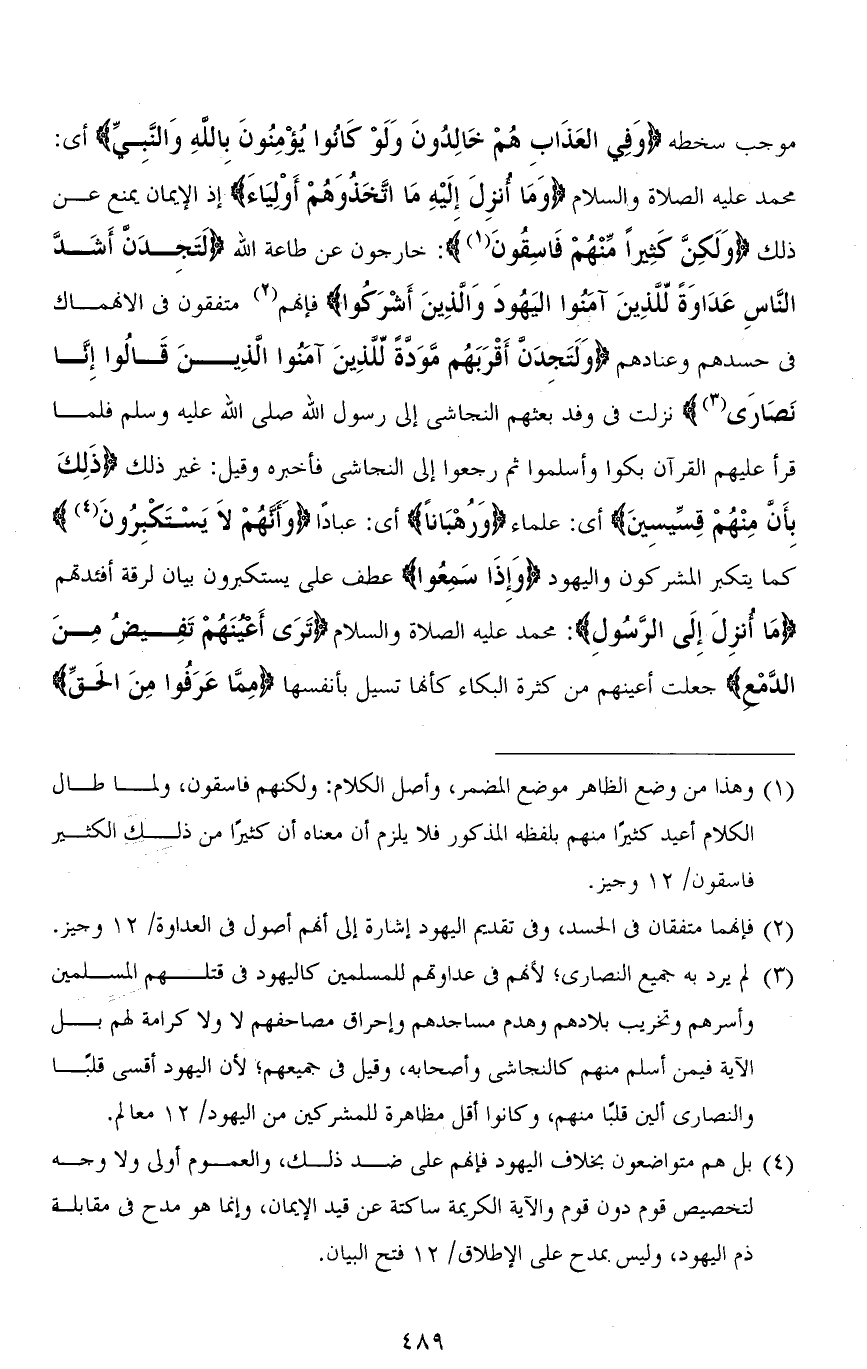 موجب سخطه ﴿وَفِي العَذَابِ هُمْ خَالِدُونَ وَلَوْ كَانُوا يُؤْمِنُونَ بِاللَّهِ وَالنَّبِيِّ﴾ أى:
محمد عليه الصلاة والسلام ﴿وَمَا أُنزِلَ إِلَيْهِ مَا اتَّخَذُوَهُمْ أَوْلِيَاءَ﴾ إذ الإيمان يمنع عن
ذلك ﴿وَلَكِنَّ كَثِيراً مِّنْهُمْ فَاسِقُونَ(١)﴾: خارجون عن طاعة الله ﴿لَتَجِدَنَّ أَشَدَّ
النَّاسِ عَدَاوَةً لِّلَّذِينَ آمَنُوا اليَهُودَ وَالَّذِينَ أَشْرَكُوا﴾ فإنهم(٢) متفقون فى الانهماك
فى حسدهم وعنادهم ﴿وَلَتَجِدَنَّ أَقْرَبَهُم مَّوَدَّةً لِّلَّذِينَ آمَنُوا الَّذِينَ قَالُوا إِنَّا
نَصَارَى(٣)﴾ نزلت فى وفد بعثهم النجاشى إلى رسول الله صلى الله عليه وسلم فلما
قرأ عليهم القرآن بكوا وأسلموا ثم رجعوا إلى النجاشى فأخبره وقيل: غير ذلك ﴿ذَلِكَ
بِأَنَّ مِنْهُمْ قِسِّيسِينَ﴾ أى: علماء ﴿وَرُهْبَاناً﴾ أى: عبادًا ﴿وَأَنَّهُمْ لاَ يَسْتَكْبِرُونَ(٤)﴾
كما يتكبر المشركون واليهود ﴿وَإِذَا سَمِعُوا﴾ عطف على يستكبرون بيان لرقة أفئدتهم
﴿مَا أُنزِلَ إِلَى الرَّسُولِ﴾: محمد عليه الصلاة والسلام ﴿تَرَى أَعْيُنَهُمْ تَفِيضُ مِنَ
الدَّمْعِ﴾ جعلت أعينهم من كثرة البكاء كأنها تسيل بأنفسها ﴿مِمَّا عَرَفُوا مِنَ الحَقِّ﴾
(١) وهذا من وضع الظاهر موضع المضمر، وأصل الكلام: ولكنهم فاسقون، ولما طال
الكلام أعيد كثيرًا منهم بلفظه المذكور فلا يلزم أن معناه أن كثيرًا من ذلك الكثير
فاسقون/ ١٢ وجيز.
(٢) فإنهما متفقان فى الحسد، وفى تقديم اليهود إشارة إلى أنهم أصول فى العداوة/ ١٢ وجيز.
(٣) لم يرد به جميع النصارى؛ لأنهم فى عداوتهم للمسلمين كاليهود فى قتلهم المسلمين
وأسرهم وتخريب بلادهم وهدم مساجدهم وإحراق مصاحفهم لا ولا كرامة لهم بل
الآية فيمن أسلم منهم كالنجاشى وأصحابه، وقيل فى جميعهم؛ لأن اليهود أقسى قلبًا
والنصارى ألين قلبًا منهم، وكانوا أقل مظاهرة للمشركين من اليهود/ ١٢ معالم.
(٤) بل هم متواضعون بخلاف اليهود فإنهم على ضد ذلك، والعموم أولى ولا وجه
لتخصيص قوم دون قوم والآية الكريمة ساكتة عن قيد الإيمان، وإنما هو مدح فى مقابلة
ذم اليهود، وليس بمدح على الإطلاق/ ١٢ فتح البيان.
٤٨٩